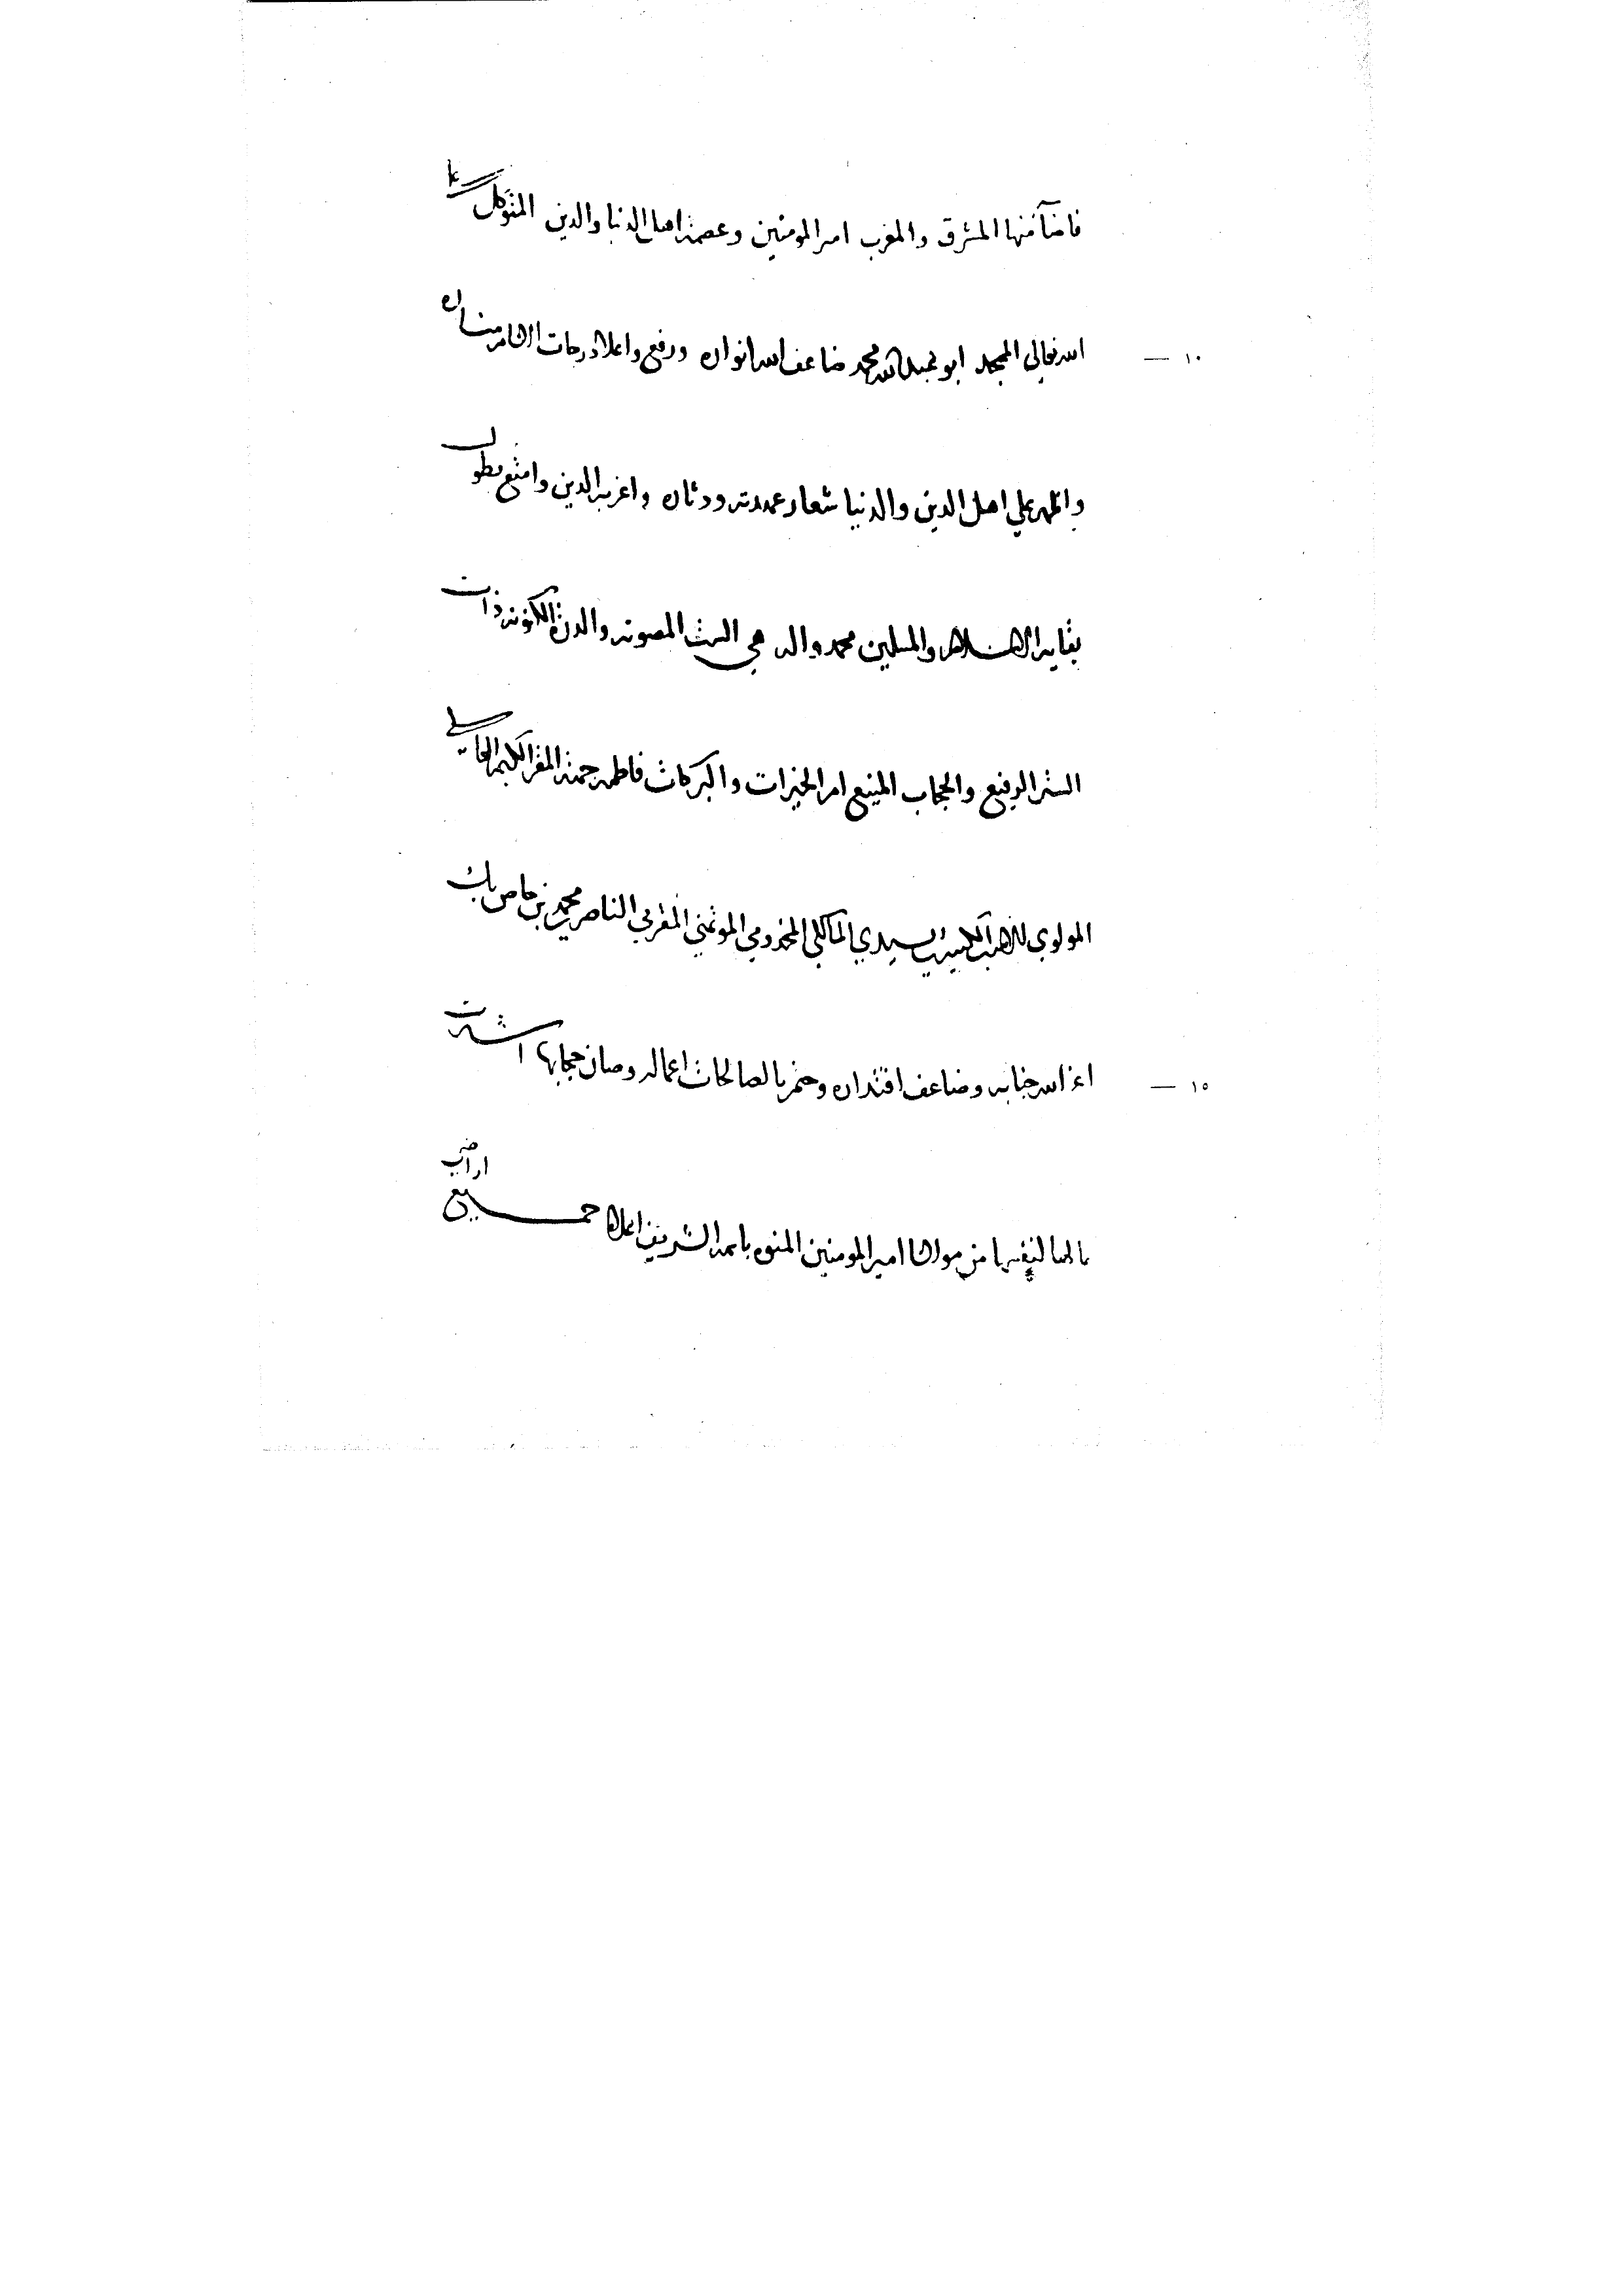 فاضآ منها المشرق والمغرب امير المومنين وعصمة اهل الدنيا والدين المتوكل على
١٠ — الله تعالي الممجد ابو عبد الله محمد ضاعف الله انواره ورفع واعلا درجات الامر مناره
واظهر علي اهل الدين والدنيا شعار عهدته ودثاره واعز به الدين وامتع بطول
بقايه الاسلام والمسلمين محمد واله هي الست المصونه والدرة المكنونه ذات
الستر الرفيع والحجاب المنيع ام الخيرات والبركات فاطمه جهة المقر الكريم العالي
المولوي السيدي المالكي المخدومي الموتمني المقر بي الناصر محمد بن خاص بك
١٥ — اعز الله جنابه وضاعف اقتداره وختم بالصالحات اعماله وصان حجابها اشترت
بمالها لنفسها من مولانا امير المومنين المنوه باسمه الشريف اعلاه جميع
اراضي